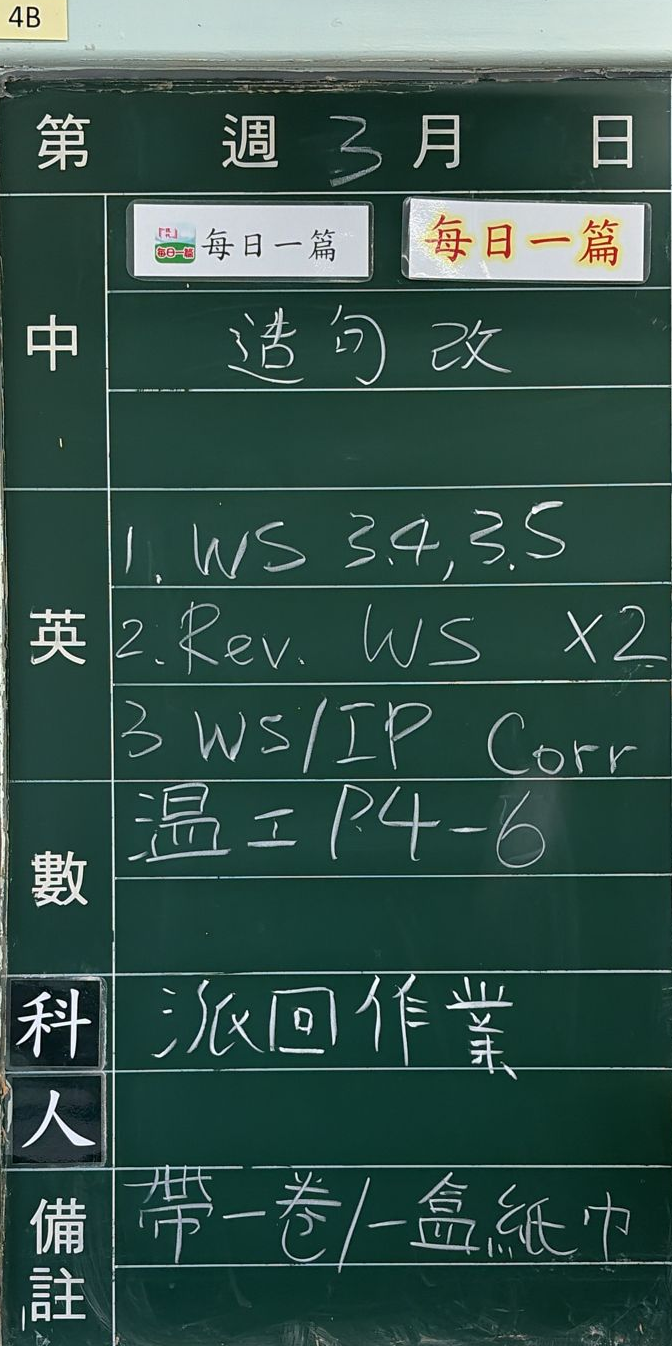 4B
第 週 3 月 日
每日一篇 每日一篇 每日一篇
中
造句 改
英
1. WS 3.4, 3.5
2. Rev. WS x2
3 WS/IP Corr
數
温工 P.4-6
科
派回作業
人
備註
帶一卷/一盒紙巾